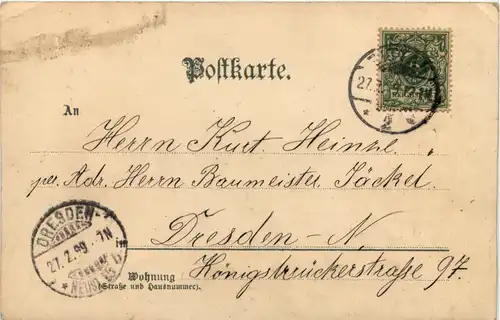 Postkarte.
27.2.
2
An
Herrn Kurt Heinze.
per Adr. Herrn Baumeister Jäckel
DRESDEN-
27.2.99. 7N
NEUST.
in Dresden-N.
Wohnung
(Straße und Hausnummer).
Königsbrückerstraße 97.